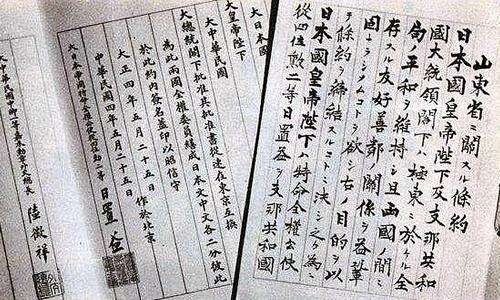 山東省ニ關スル條約
日本國皇帝陛下及支那共和
國大統領閣下ハ極東ニ於ケル全
局ノ平和ヲ維持シ且兩國ノ間ニ
存スル友好善鄰ノ關係ヲ益鞏
固ナラシメムコトヲ欲シ右ノ目的ヲ以
テ條約ヲ締結スルコトニ決シ之カ為
日本國皇帝陛下ハ特命全權公使
從四位勲二等日置益ヲ支那共和國
大日本國
大皇帝陛下
大中華民國
大總統閣下批准其批准書從速在東京互換
為此兩國全權委員繕成日本文中文各二分彼此
於此約內簽名蓋印以昭信守
大正四年五月二十五日作於北京
中華民國四年五月二十五日
大日本帝國特命全權公使從四位勲二等 日置益
大中華民國中卿一等嘉禾勳章外交總長 陸徵祥